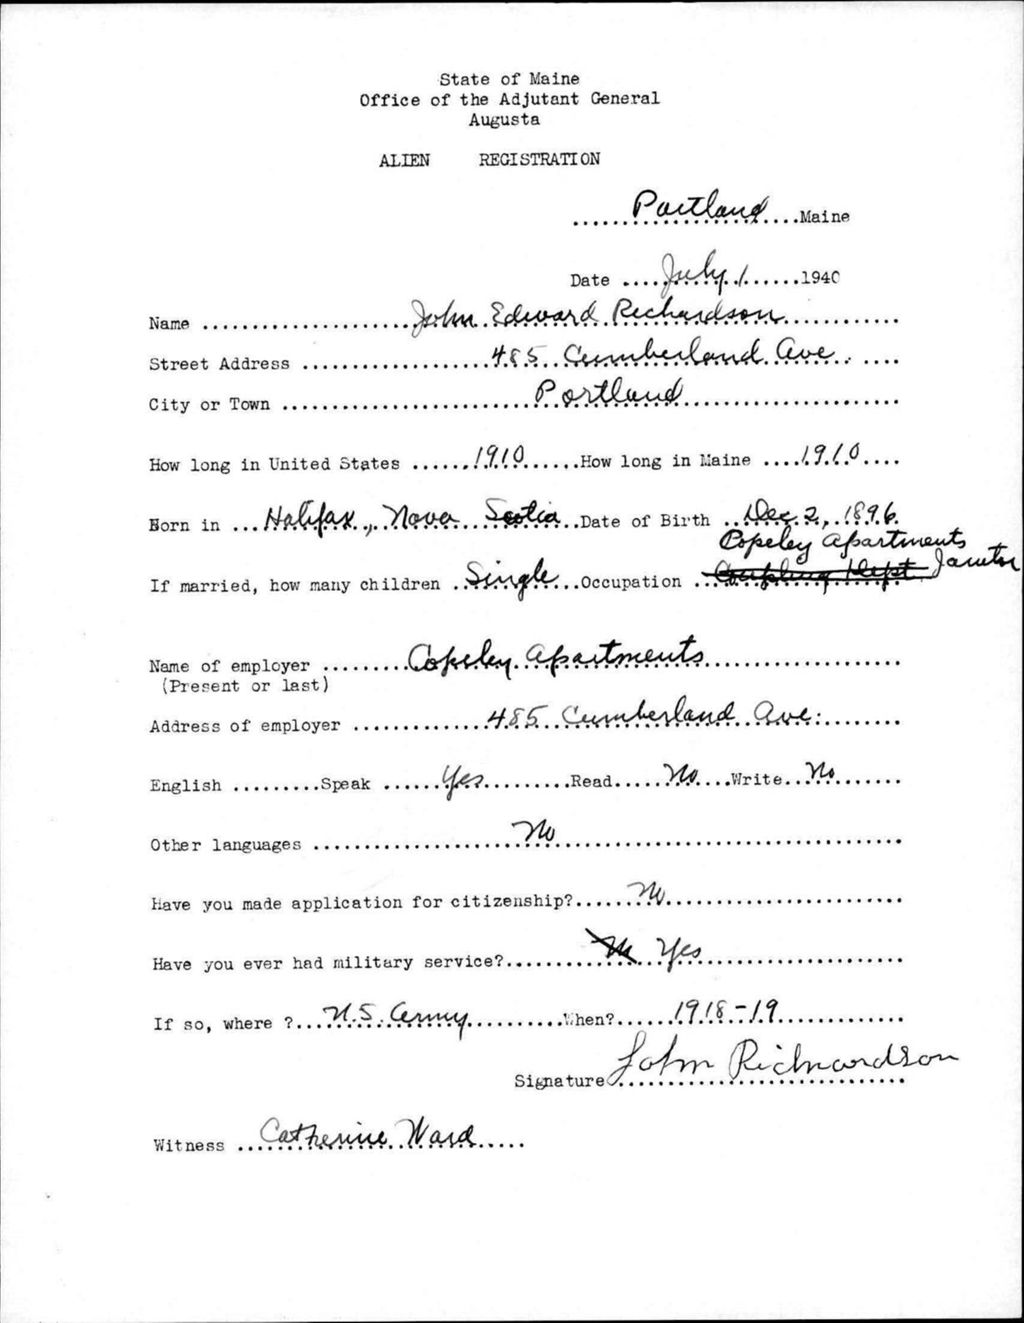 State of Maine
Office of the Adjutant General
Augusta
ALIEN REGISTRATION
......Portland....Maine
Date ....July 1......1940
Name .....................John Edward Richardson............
Street Address ...................485 Cumberland Ave. ....
City or Town .........................Portland......................
How long in United States ......1910......How long in Maine ....1910....
Born in ...Halifax, Nova Scotia..Date of Birth ..Dec. 2, 1896.
Copeley Apartments
If married, how many children .Single...Occupation .. Janitor
Name of employer .........Copeley Apartments....................
(Present or last)
Address of employer .............485 Cumberland Ave.........
English .........Speak ......Yes..........Read.....No....Write..No.......
Other languages ....................No....................................
Have you made application for citizenship?......No........................
Have you ever had military service?..........No Yes....................
If so, where ?...U.S. Army..........When?......1918-19..............
Signature John Richardson
Witness ...Catherine Ward.....